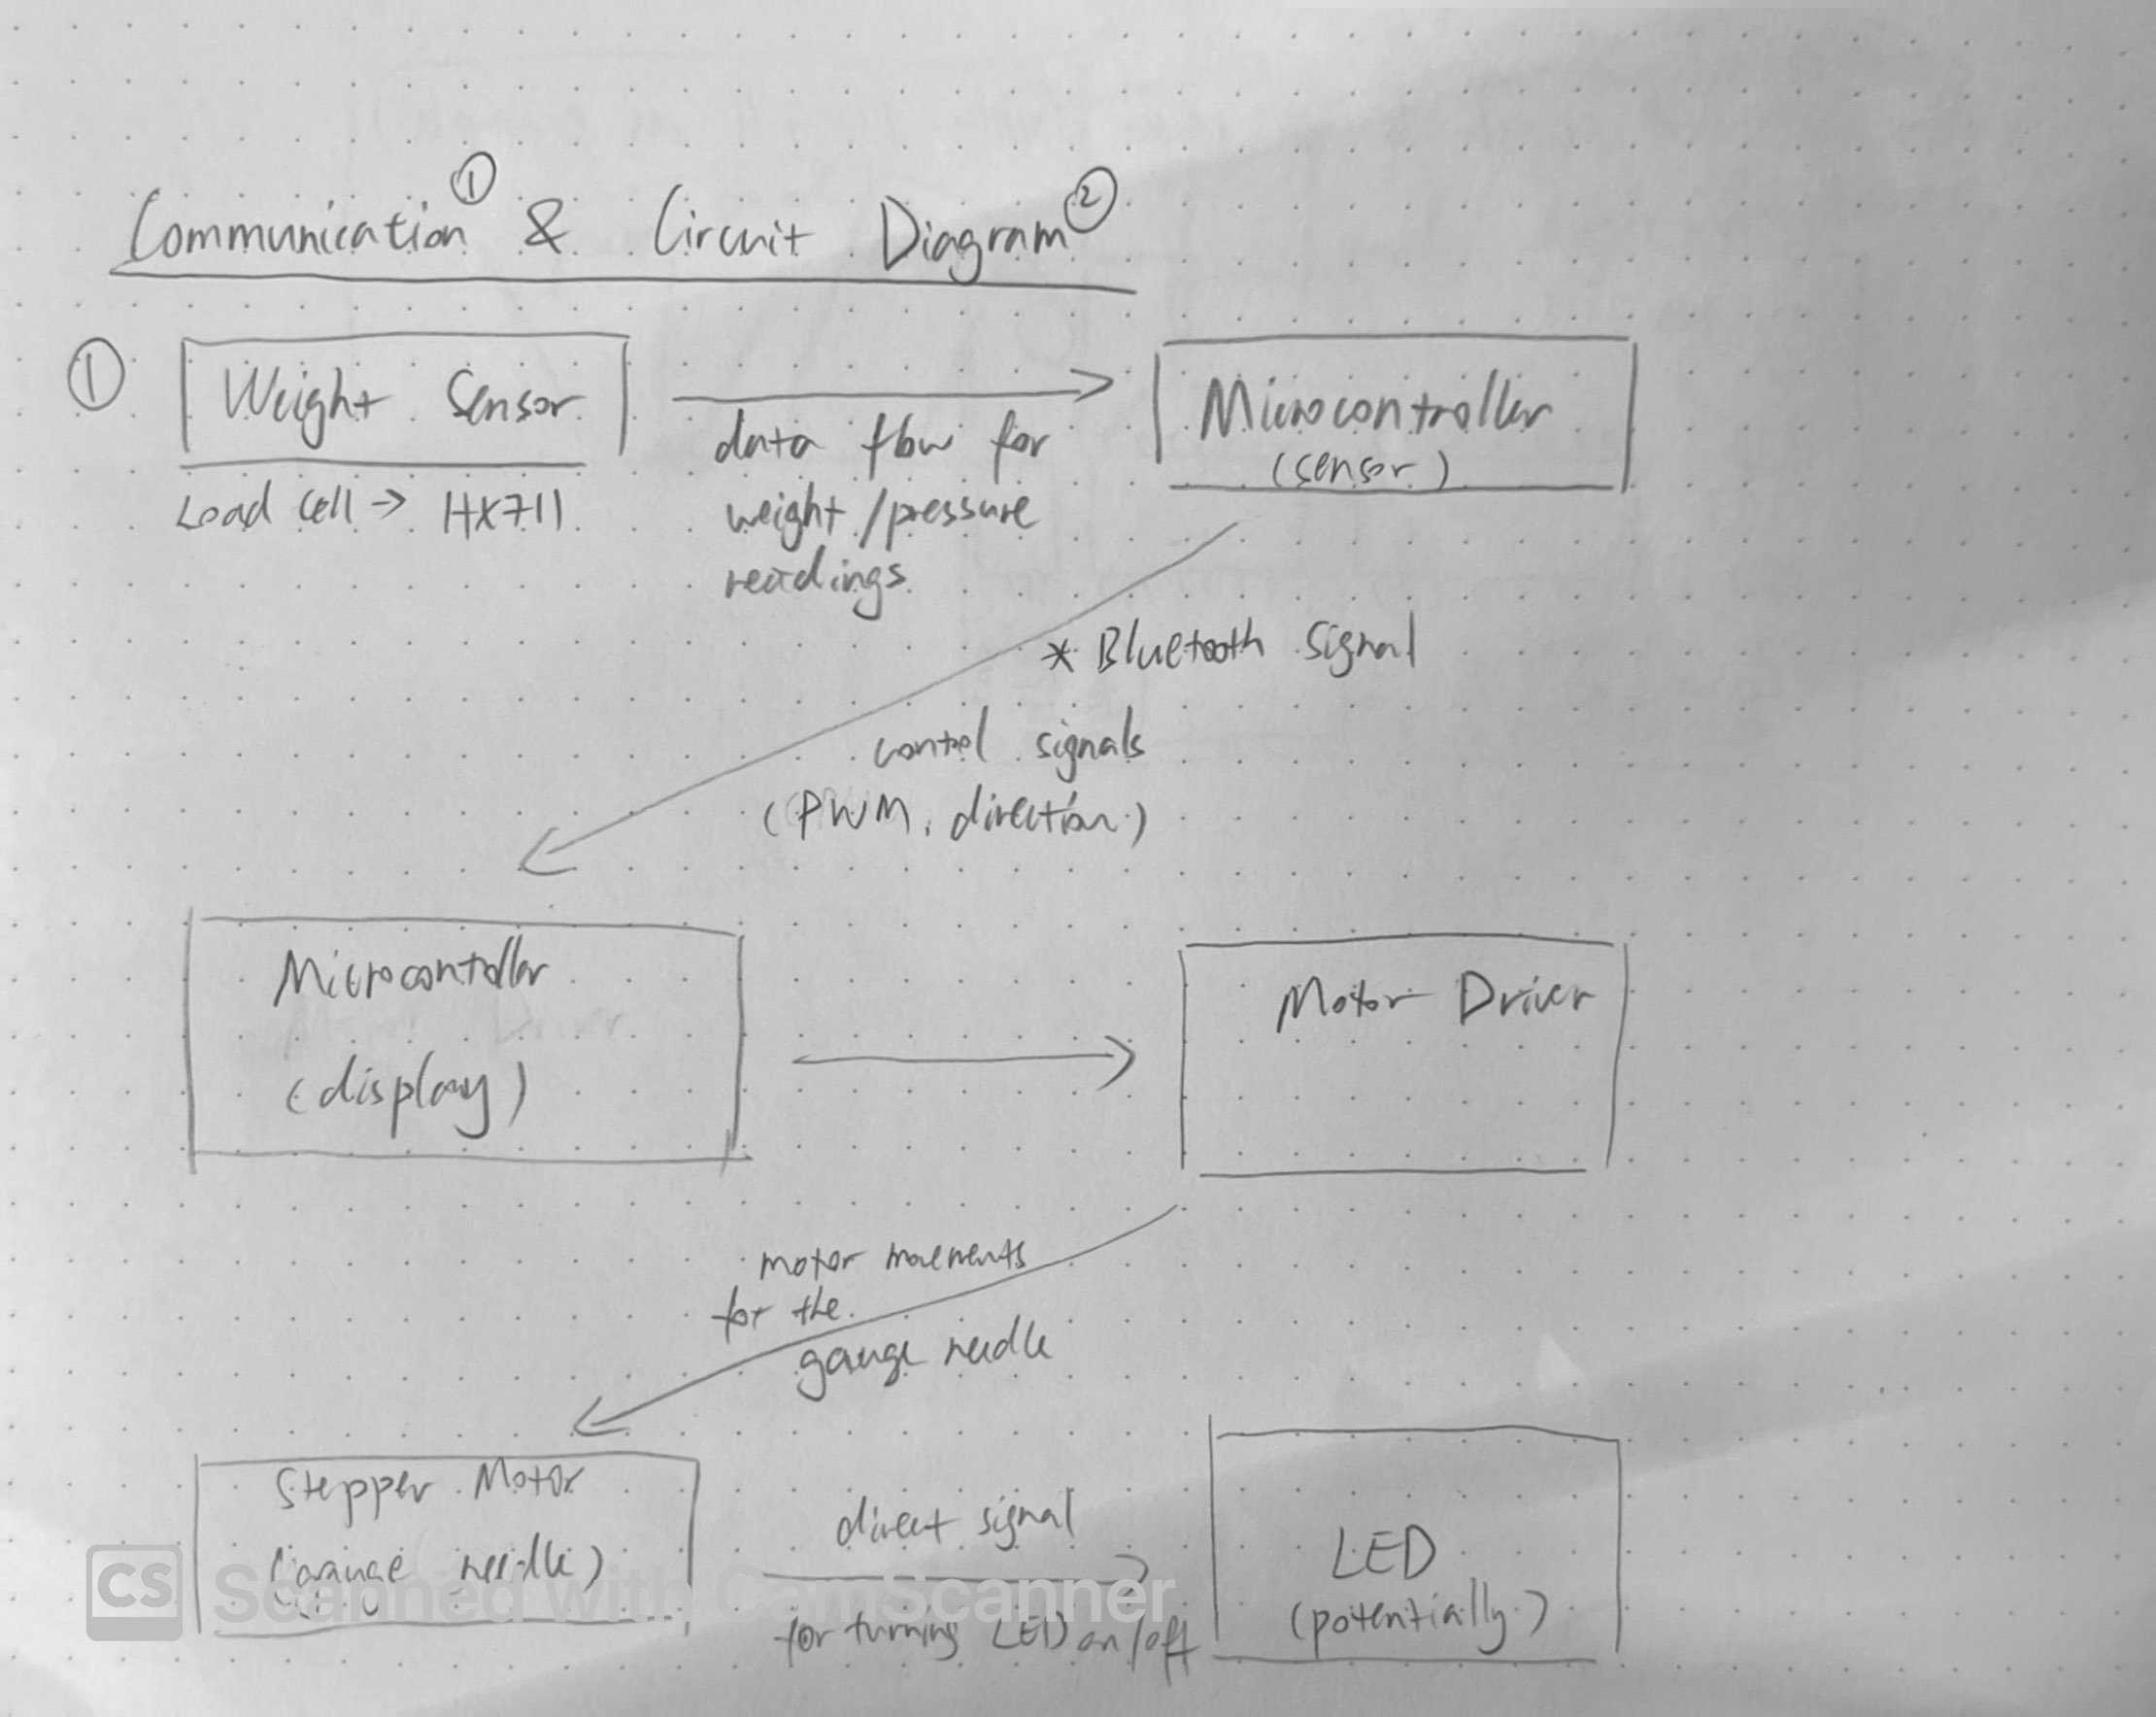 Communication ① & Circuit Diagram ②
①
Weight Sensor
Load Cell → HX711
data flow for
weight/pressure
readings
Microcontroller
(sensor)
* Bluetooth signal
control signals
(PWM, direction)
Microcontroller
(display)
Motor Driver
motor movements
for the
gauge needle
Stepper Motor
(gauge needle)
direct signal
for turning LED on/off
LED
(potentially)
CS Scanned with CamScanner